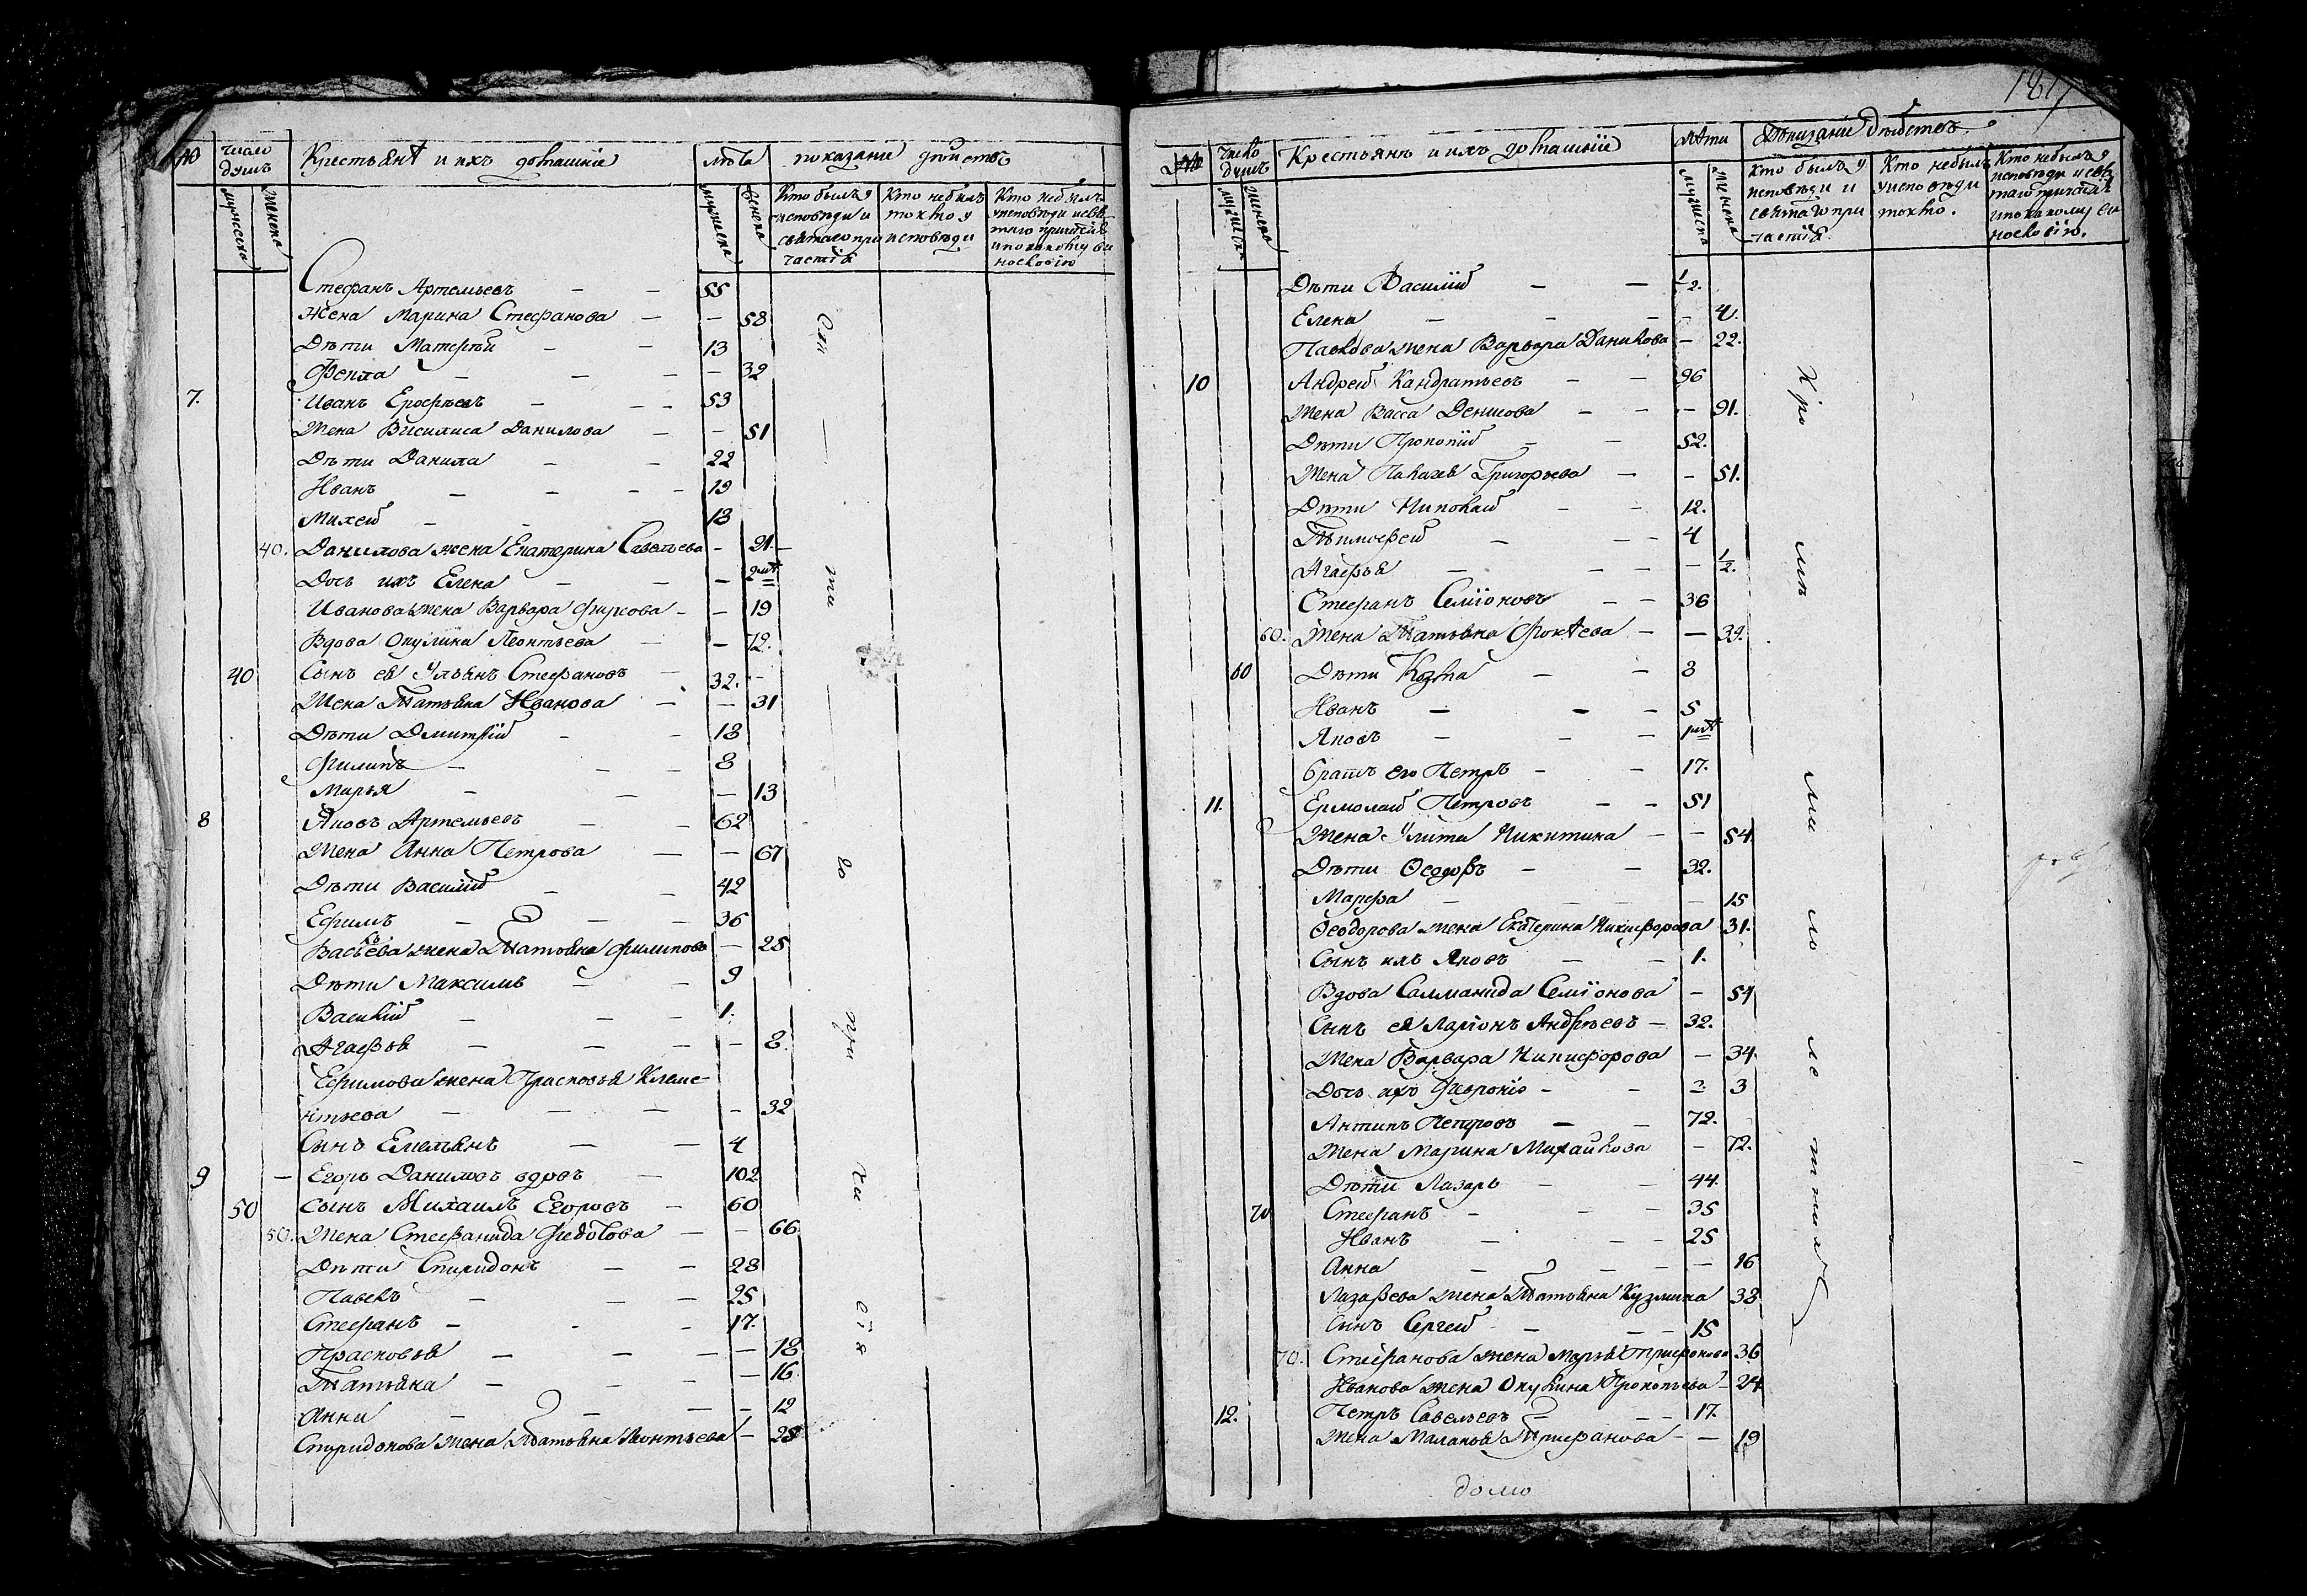 № число душъ Крестьянѣ и ихъ домашніе лѣта показаніе дѣйствъ
мужеска женска мужеска женска Кто былъ у исповѣди и святаго причастія Кто небылъ токмо у исповѣди Кто небылъ у исповѣди и святаго причастія и по какому винословію
Стефанъ Артемьевъ — — 55
Жена Марина Стефанова — — 58
Дѣти Матфѣй — — 13
Фекла — — — — 32
7. Иванъ Ерофѣевъ — — — 53
Жена Василиса Данилова — — 51
Дѣти Данила — — 22
Иванъ — — — — 19
Михей — — 13
40. Данилова жена Екатерина Савельева — 21. —
Дочь ихъ Елена — — —
Иванова жена Варвара — — 19
Вдова Окулина Леонтьева — — 72.
40 Сынъ ея Ульянъ Стефановъ — 32. —
Жена Татьяна Иванова — — 31
Дѣти Дмитрій — — 13
Филипъ — — — 8
Марья — — — 13
8 Яковъ Артемьевъ — — 62
Жена Анна Петрова — — 67
Дѣти Василій — — 42
Ефимъ — — — 36
Васильева жена Татьяна Филипова — 25
Дѣти Максимъ — — 9
Василій — — — 1.
Агафья — — — — 8.
Ефимова жена Прасковья Клеме-
нтьева — — — — 32
Сынъ Емельянъ — — 4
9 — Егоръ Даниловъ вдовъ — 102
50 Сынъ Михаилъ Егоровъ — 60
50. Жена Стефанида Федотова — — 66.
Дѣти Спиридонъ — — 28
Павелъ — — — 25
Стефанъ — — — 17.
Прасковья — — — — 18
Татьяна — — — — 16.
Анна — — — — 12
Спиридонова жена Татьяна Леонтьева — 28
№ Число душъ Крестьянѣ и ихъ домашніе лѣти Показаніе дѣйствъ.
мужеска женска мужеска женска Кто былъ у исповѣди и святаго причастія Кто небылъ у исповѣди токмо. Кто небылъ у исповѣди и святаго причастія и по какому винословію.
Дѣти Василій — — 1/2.
Елена — — — — 4.
Павлова жена Варвара Данилова — 22.
10 Андрей Кандратьевъ — — 96
Жена Васса Денисова — — — 91.
Дѣти Прокопій — — 52.
Жена Палагея Григорьева — — 51.
Дѣти Николай — — 12.
Тимофей — — — 4
Агафья — — — — 1/2.
Стефанъ Семіоновъ — — 36
60. Жена Татьяна Фокѣева — — 39.
60 Дѣти Козма — — 8
Иванъ — — — 5
Яковъ — — —
братъ его Петръ — — 17.
11. Ермолай Петровъ — — 51
Жена Улита Никитина — — 54.
Дѣти Ѳеодоръ — — 32.
Марфа — — — — 15
Ѳеодорова жена Екатерина Никифорова 31.
Сынъ ихъ Яковъ — — 1.
Вдова Салманида Семіонова — 54
Сынъ ея Ларіонъ Андрѣевъ — 32.
Жена Варвара Никифорова — 34.
Дочь ихъ Февронія — — 3
Антипъ Петровъ — — 72.
Жена Марина Михайлова — 72.
Дѣти Лазарь — — 44.
70 Стефанъ — — — 35
Иванъ — — — 25
Анна — — — — 16
Лазарева жена Татьяна Кузмина 38
Сынъ Сергей — — — 15
70. Стефанова жена Марья Трифонова 36
Иванова жена Окулина Прокопьева — 24
12. Петръ Савельевъ — — — 17.
Жена Маланья Трифанова — — 19